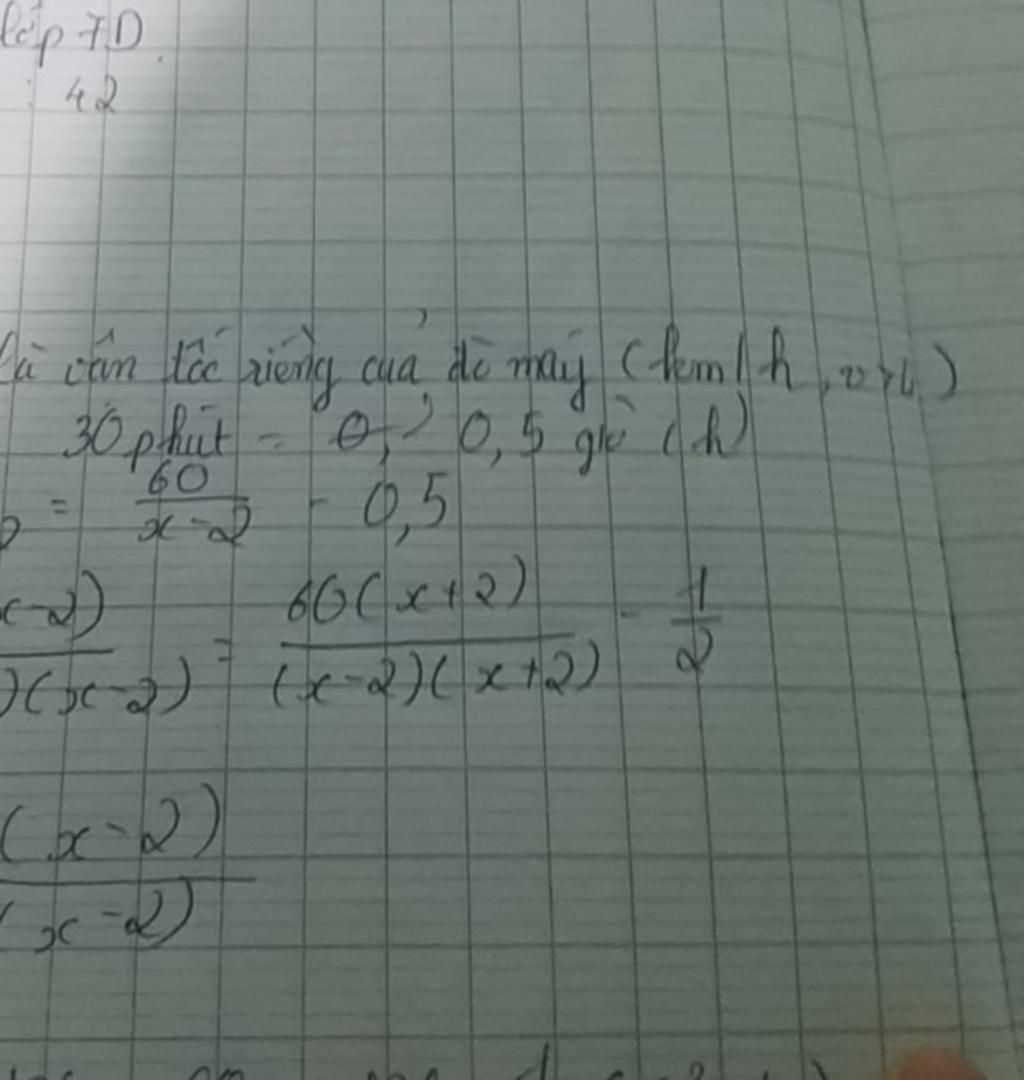 lớp 7D
42
là vận tốc riêng của đò máy (km/h,
30 phút = 0,5 giờ (h)
= \frac{60}{x-2} - 0,5
\frac{x-2)}{)(x-2)} = \frac{60(x+2)}{(x-2)(x+2)} - \frac{1}{2}
\frac{(x-2)}{(x-2)}